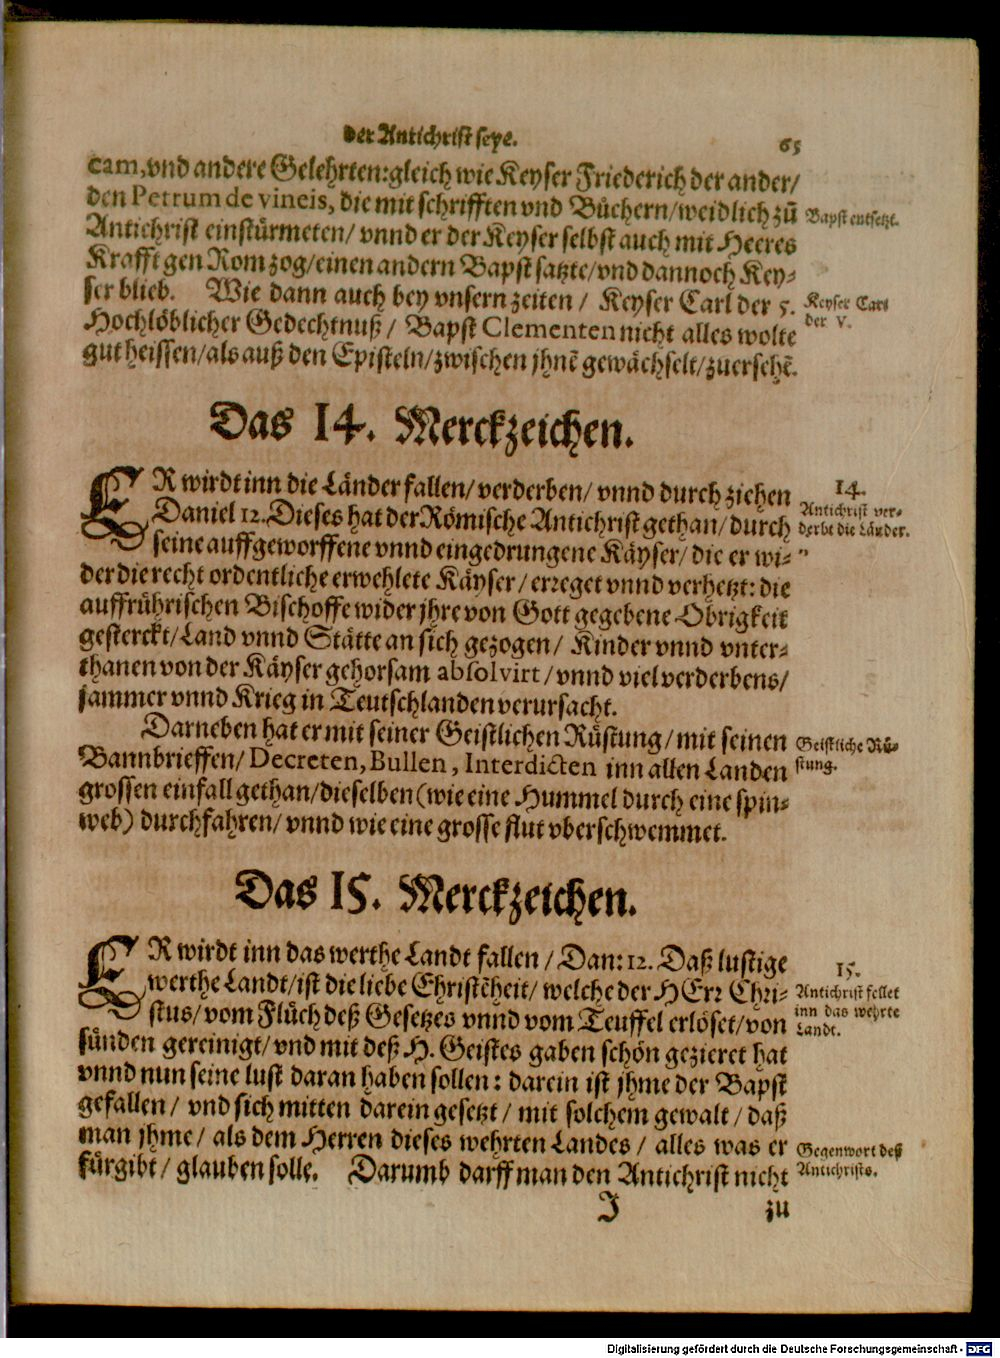 der Antichrist seye. 65
cam, vnd andere Gelehrten: gleich wie Keyser Friederich der ander/
den Petrum de vineis, die mit schrifften vnd Büchern/ weidlich zū
Antichrist einstürmeten/ vnnd er der Keyser selbst auch mit Heeres
Krafft gen Rom zog/ einen andern Bapst satzte/ vnd dannoch Key-
ser blieb. Wie dann auch bey vnsern zeiten / Keyser Carl der 5.
Hochlöblicher Gedechtnuß / Bapst Clementen nicht alles wolte
gut heissen/ als auß den Episteln/ zwischen jhnē gewächselt/ zuersehē.
Bapst entsetzt.
Keyser Carl
der V.
Das 14. Merckzeichen.
ER wirdt inn die Länder fallen/ verderben/ vnnd durch ziehen
Daniel 12. Dieses hat der Römische Antichrist gethan/ durch
seine auffgeworffene vnnd eingedrungene Käyser/ die er wi-
der die recht ordentliche erwehlete Käyser/ erreget vnnd verhetzt: die
auffrührischen Bischoffe wider jhre von Gott gegebene Obrigkeit
gesterckt/ Land vnnd Stätte an sich gezogen/ Kinder vnnd vnter-
thanen von der Käyser gehorsam absolvirt/ vnnd viel verderbens/
jammer vnnd Krieg in Teutschlanden verursacht.
14.
Antichrist ver-
derbt die Länder.
Darneben hat er mit seiner Geistlichen Rüstung/ mit seinen
Bannbrieffen/ Decreten, Bullen, Interdicten inn allen Landen
grossen einfall gethan/ dieselben (wie eine Hummel durch eine spin-
web) durchfahren/ vnnd wie eine grosse flut vberschwemmet.
Geistliche Rü-
stung.
Das 15. Merckzeichen.
ER wirdt inn das werthe Landt fallen / Dan: 12. Daß lustige
werthe Landt/ ist die liebe Christēheit/ welche der HErr Chri-
stus/ vom Flüch deß Gesetzes vnnd vom Teuffel erlöset/ von
sünden gereinigt/ vnd mit deß H. Geistes gaben schön gezieret hat
vnnd nun seine lust daran haben sollen: darein ist jhme der Bapst
gefallen / vnd sich mitten darein gesetzt / mit solchem gewalt / daß
man jhme / als dem Herren dieses wehrten Landes / alles was er
fürgibt / glauben solle. Darumb darff man den Antichrist nicht
15.
Antichrist fellet
inn das wehrte
Landt.
Gegenwort deß
Antichrists.
J zu
Digitalisierung gefördert durch die Deutsche Forschungsgemeinschaft - DFG